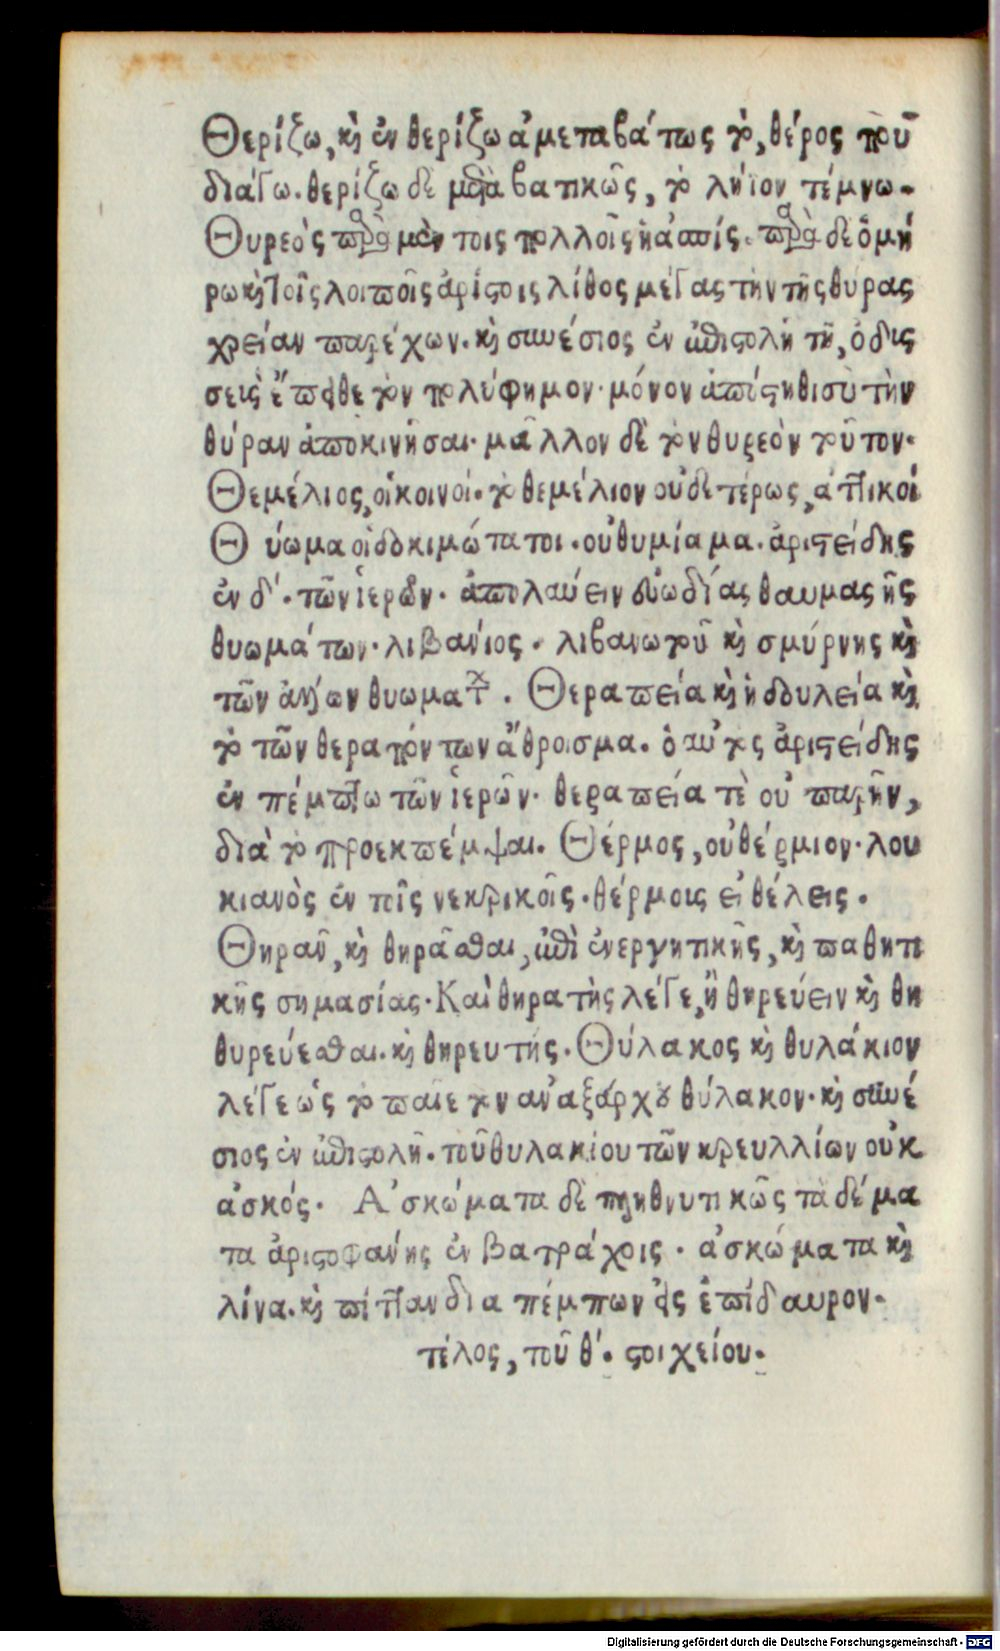 Θερίζω, καὶ ἐν θερίζω ἀμεταβάτως τὸ, θέρος που
διάγω. θερίζω δὲ μεταβατικῶς, τὸ λήϊον τέμνω.
Θυρεὸς παρὰ μὲν τοις πολλοῖς ἡ ἀσπίς. παρὰ δὲ ὁμή
ρω καὶ τοῖς λοιποῖς ἀρίστοις λίθος μέγας τὴν τῆς θύρας
χρείαν παρέχων. καὶ συνέσιος ἐν ἐπιστολῆ τῆ, ὀδυς
σεὺς ἔπειθε τὸν πολύφημον. μόνον ἀπίστηθι σὺ τὴν
θύραν ἀποκινῆσαι. μᾶλλον δὲ τὸν θυρεὸν τοῦτον.
Θεμέλιος, οἱ κοινοί. τὸ θεμέλιον οὐδετέρως, ἀττικοί
Θύωμα οἱ δοκιμώτατοι. οὐ θυμίαμα. ἀριστείδης
ἐν δ'. τῶν ἱερῶν. ἀπολαύειν εὐωδίας θαυμαστῆς
θυωμάτων. λιβάνιος. λιβανωτοῦ καὶ σμύρνης καὶ
τῶν ἄλλων θυωμάτων. Θεραπεία καὶ ἡ δουλεία καὶ
τὸ τῶν θεραπόντων ἄθροισμα. ὁ αὐτὸς ἀριστείδης
ἐν πέμπτω τῶν ἱερῶν. θεραπεία τὲ οὐ παρῆν,
διὰ τὸ προεκπέμψαι. Θέρμος, οὐ θέρμιον. λου
κιανὸς ἐν τοῖς νεκρικοῖς. θέρμοις εἰ θέλεις.
Θηρᾶν, καὶ θηρᾶσθαι, ἐπὶ ἐνεργητικῆς, καὶ παθητι
κῆς σημασίας. Καὶ θηρατὴς λέγε, ἢ θηρεύειν καὶ θη
θυρεύεσθαι. καὶ θηρευτής. Θύλακος καὶ θυλάκιον
λέγε ὡς τὸ παῖε τὸν ἀναξάρχου θύλακον. καὶ συνέ
σιος ἐν ἐπιστολῆ. τοῦ θυλακίου τῶν κρευλλίων οὐκ
ἀσκός. Ἀσκώματα δὲ πληθυντικῶς τὰ δέρμα
τα ἀριστοφάνης ἐν βατράχοις. ἀσκώματα καὶ
λίνα. καὶ πίτταν διαπέμπων εἰς ἐπίδαυρον.
τέλος, τοῦ θ'. στοιχείου.
Digitalisierung gefördert durch die Deutsche Forschungsgemeinschaft - DFG